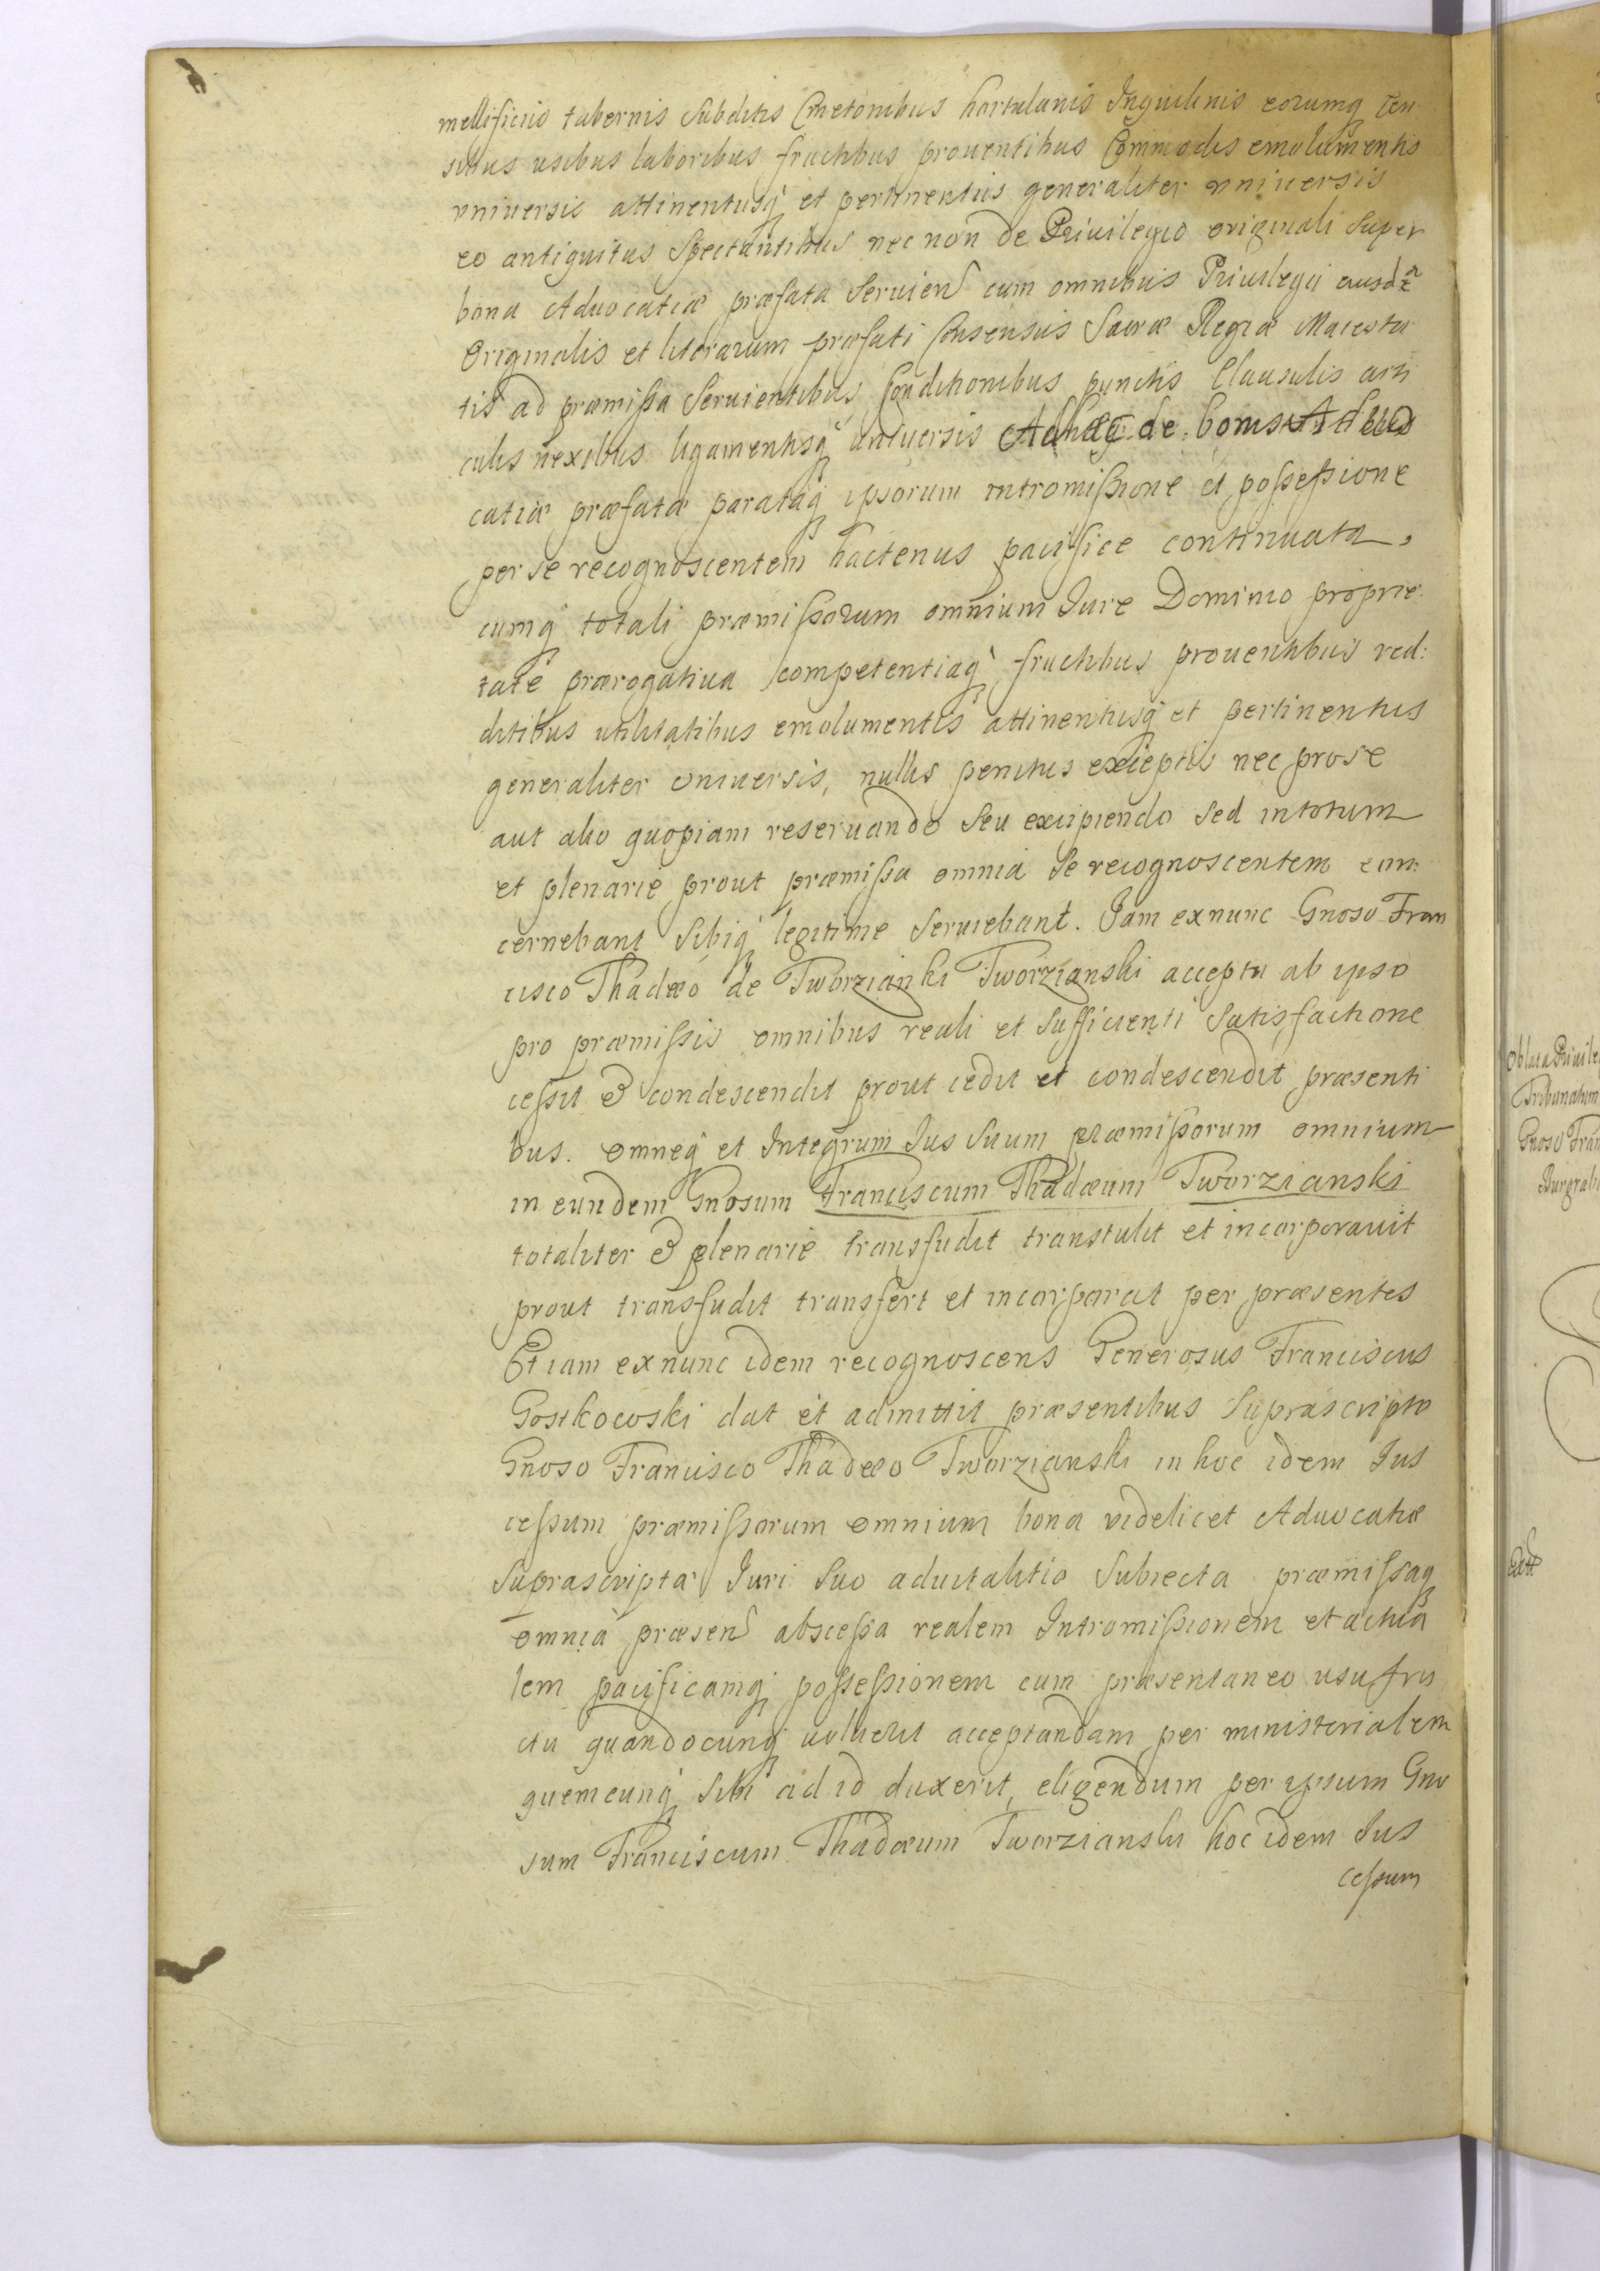 mellificiis tabernis Subditis Cmetonibus hortulanis Inquilinis eorumq Cen
sibus usibus laboribus fructibus prouentibus Commodis emolumentis
vniuersis attinentiisq et pertinentiis generaliter vniuersis
eo antiquitus Spectantibus nec non de Priuilegio originali super
bona Aduocatiæ præfata Seruien cum omnibus Priuilegii eiusd
Originalis et literarum præfati Consensus Sacræ Regiæ Maiesta
tis ad præmissa Seruientibus Conditionibus punctis Clausulis arti
culis nexibus ligamentisq vniuersis Adhæc de bonis Aduo
catiæ præfatæ parataq ipsorum intromissione et possessione
per se recognoscentem hactenus pacifice continuata,
cumq totali præmissorum omnium Iure Dominio proprie
tate prærogatiua competentiaq fructibus prouentibus red:
ditibus utilitatibus emolumentis attinentiisq et pertinentiis
generaliter vniuersis, nullis penitus exceptis nec pro se
aut alio quopiam reseruando seu excipiendo Sed in totum
et plenarie prout præmissa omnia Se recognoscentem con:
cernebant Sibiq legitime Seruiebant. Iam ex nunc Gnoso Fran
cisco Thadæo de Tworzianki Tworzianski accepta ab ipso
pro præmissis omnibus reali et Sufficienti Satisfactione
cessit et condescendit prout cedit et condescendit præsenti
bus. omneq et Integrum Ius Suum præmissorum omnium
in eundem Gnosum Franciscum Thadæum Tworzianski
totaliter et plenarie transfudit transtulit et incorporauit
prout transfudit transfert et incorporat per præsentes
Et iam ex nunc idem recognoscens Generosus Franciscus
Gostkowski dat et admittit præsentibus Suprascripto
Gnoso Francisco Thadæo Tworzianski in hoc idem Ius
cessum præmissorum omnium bona videlicet Aduocatiæ
Suprascripta Iuri Suo aduitalitio Subiecta præmissaq
omnia præsen abscessa realem Intromissionem et actua
lem pacificamq possessionem cum præsentaneo usufru
ctu quandocunq uoluerit acceptandam per ministerialem
quemcunq Sibi ad id duxerit, eligendum per ipsum Gno
sum Franciscum Thadæum Tworzianski hoc idem Ius
cessum
Oblata Priuile
Tribunatum
Gnoso Fran
Burgrabi